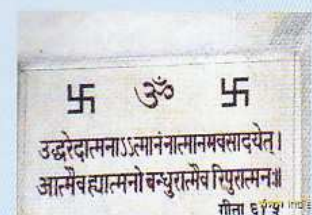 卐 ॐ 卐
उद्धरेदात्मनाऽऽत्मानंनात्मानमवसादयेत्।
आत्मैव ह्यात्मनो बन्धुरात्मैव रिपुरात्मनः॥
गीता ६।५